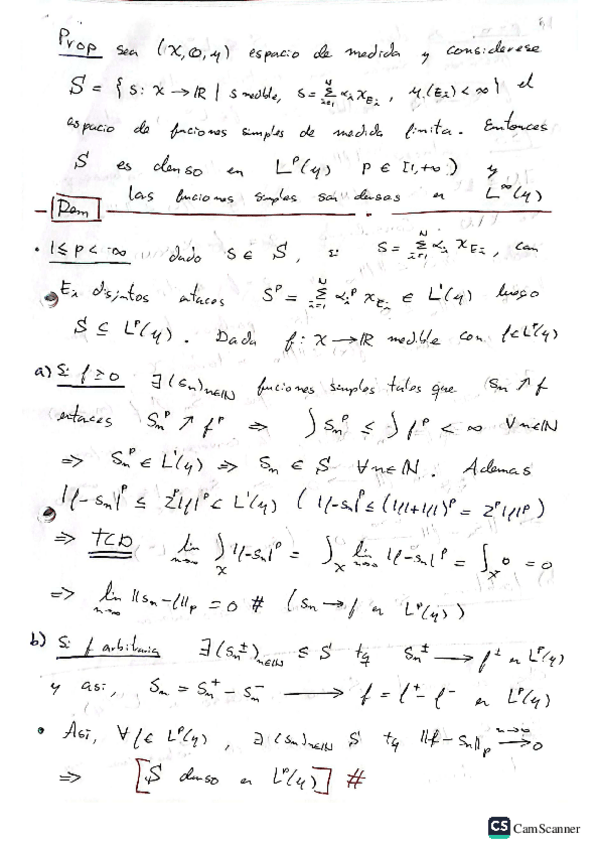 Prop sea (X, O, μ) espacio de medida y considerese
S = { s: X → ℝ | s medble, s = Σ_{i=1}^{N} α_i χ_{E_i}, μ(E_i) < ∞ } el
espacio de funciones simples de medida finita. Entonces
S es denso en L^p(μ) p ∈ [1,+∞) y
las funciones simples son densas en L^∞(μ)
Dem
• 1 ≤ p < ∞ dado s ∈ S, si s = Σ_{i=1}^{N} α_i χ_{E_i}, con
E_i disjntos entonces s^p = Σ_{i=1}^{N} α_i^p χ_{E_i} ∈ L^1(μ) luego
S ⊆ L^p(μ). Dada f: X → ℝ medible con f ∈ L^p(μ)
a) Si f ≥ 0 ∃ (s_n)_{n∈ℕ} funciones simples tales que s_n ↗ f
entonces s_n^p ↗ f^p ⇒ ∫ s_n^p ≤ ∫ f^p < ∞ ∀ n∈ℕ
⇒ s_n^p ∈ L^1(μ) ⇒ s_n ∈ S ∀n∈ℕ. Ademas
|f-s_n|^p ≤ 2^p|f|^p ∈ L^1(μ) ( |f-s_n|^p ≤ (|f|+|f|)^p = 2^p|f|^p )
⇒ TCD lim_{n→∞} ∫_X |f-s_n|^p = ∫_X lim_{n→∞} |f-s_n|^p = ∫_X 0 = 0
⇒ lim_{n→∞} ||s_n - f||_p = 0 # (s_n → f en L^p(μ))
b) Si f arbitraria ∃ (s_n^±)_{n∈ℕ} ⊆ S tq s_n^± → f^± en L^p(μ)
y asi, s_n = s_n^+ - s_n^- → f = f^+ - f^- en L^p(μ)
• Asi, ∀ f ∈ L^p(μ), ∃ (s_n)_{n∈ℕ} S tq ||f - s_n||_p →^{n→∞} 0
⇒ [S denso en L^p(μ)] #
CS CamScanner